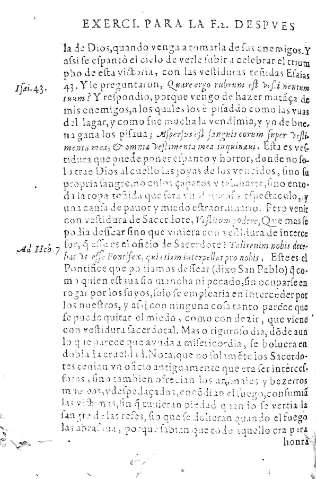 EXERCI. PARA LA F.2. DESPVES
la de Dios, quando venga a tomarla de sus enemigos. Y
assi se espantò el cielo de verle subir a celebrar el trium
pho de esta victoria, con las vestiduras teñidas Esaias
Isai. 43.
43. Y le preguntaron, Quare ergo rubrum est vestimentum
tuum? Y respondio, porque vengo de hazer matãça de
mis enemigos, a los quales los è pisado como las vuas
del lagar, y como fue mucha la vendimia, y yo de bue-
na gana los pisaua; Aspersus est sanguis eorum super vesti-
menta mea, & omnia vestimenta mea inquinaui. Esta es ve-
stidura que puede poner espanto y horror, donde no so-
lo trae Dios al cuello las joyas de los vencidos, sino su
propia sangre, no en los çapatos y
la ropa teñida que sera espectaculo, y
vna cansa de pauor y miedo estraordinario. Pero venir
con vestidura de Sacerdote, Vestitum podere, Que mas se
podia dessear sino que viniera con vestidura de interce
Ad Heb. 7
lor, q̃ esse es el oficio de Sacerdote? Talis enim nobis dece-
bat vt esse Pontifex, qui etiam interpellat pro nobis. Este es el
Pontifice que podiamos dessear (dixo San Pablo) q̃ co-
mo quien estaua sin mancha ni pecado, sin ocuparse en
rogar por los suyos, solo se emplearia en interceder por
los nuestros, y assi con ninguna cosa tanto parece que
se puede quitar el miedo, como con dezir, que viene
con vestidura sacerdotal. Mas o riguroso dia, dõde aun
lo que parece que ayuda a misericordia, se boluera en
doblada crueldad. Nota, que no solamẽte los Sacerdo-
tes tenian vn oficio antiguamente que era ser interces-
sores, sino tambien ofrecian los animales y bezerros
muertos, y despedaçados, encẽdian el fuego, consumiã
las victimas, sin q̃ tuuieran piedad quando se vertia la
sangre de las reses, sin que se dolieran quando el fuego
las abrasaua, porque sabian que todo aquello era para
honra